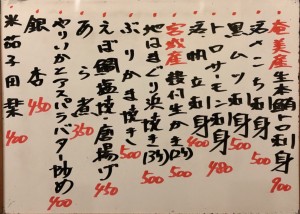 奄美産生本鮪トロ刺身 900
活さごち刺身 500
黒ムツ刺身 500
トロサーモン刺身 480
活帆立刺身 400
宮城産殻付生かき(2ヶ) 500
地はまぐり浜焼き(3ヶ) 500
ぶりかま焼き 500
えぼ鯛塩焼・唐揚げ 450
あら煮 350
やりいかとアスパラバター炒め 400
銀杏 450
米茄子田楽 400